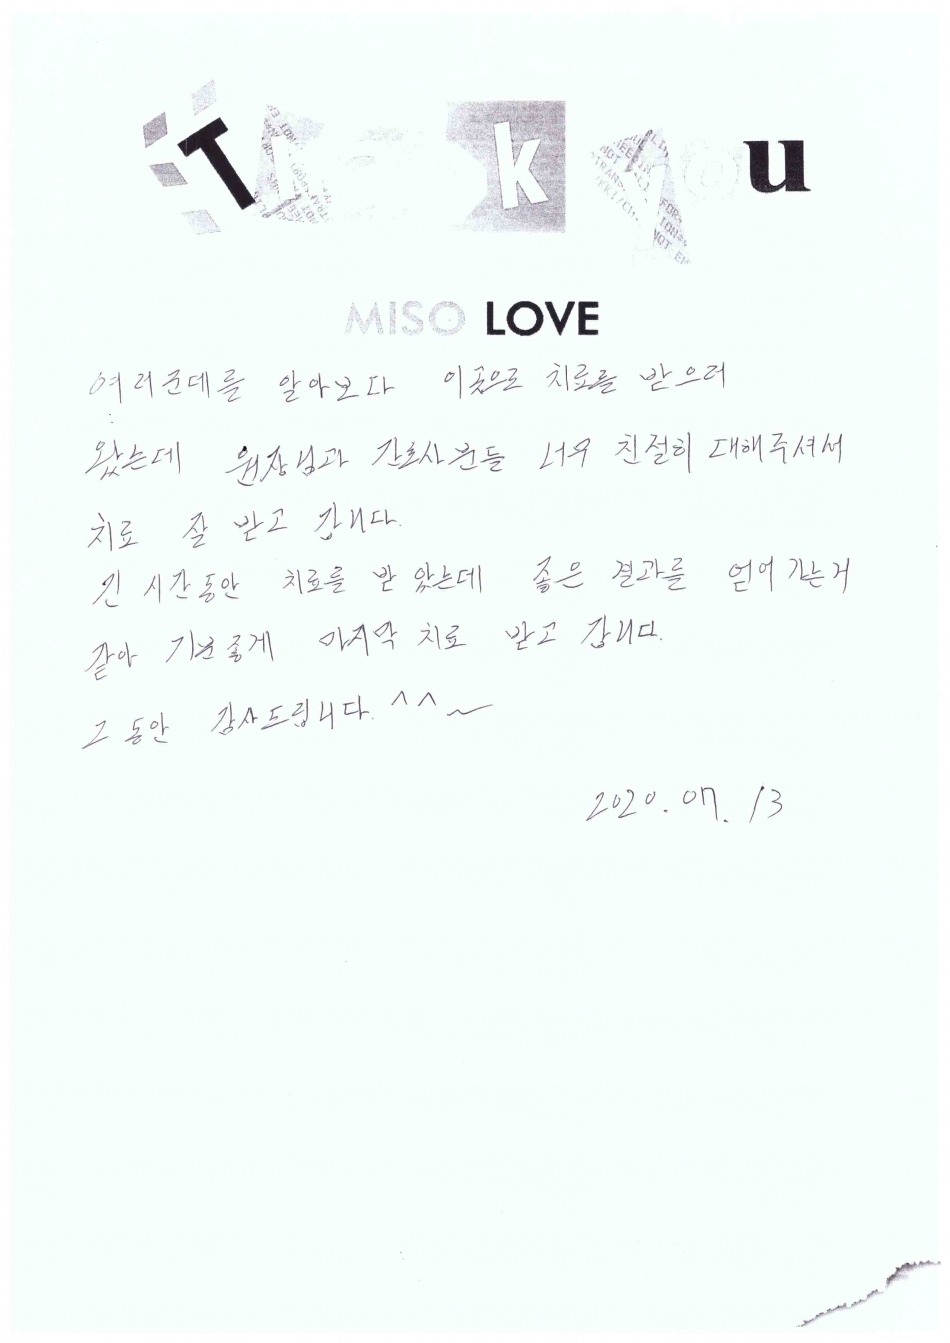 Thank you
MISO LOVE
여러군데를 알아보다 이곳으로 치료를 받으러
왔는데 원장님과 간호사분들 너무 친절히 대해주셔서
치료 잘 받고 갑니다.
긴 시간동안 치료를 받았는데 좋은 결과를 얻어가는거
같아 기분좋게 마지막 치료 받고 갑니다.
그동안 감사드립니다. ^^~
2020. 07. 13